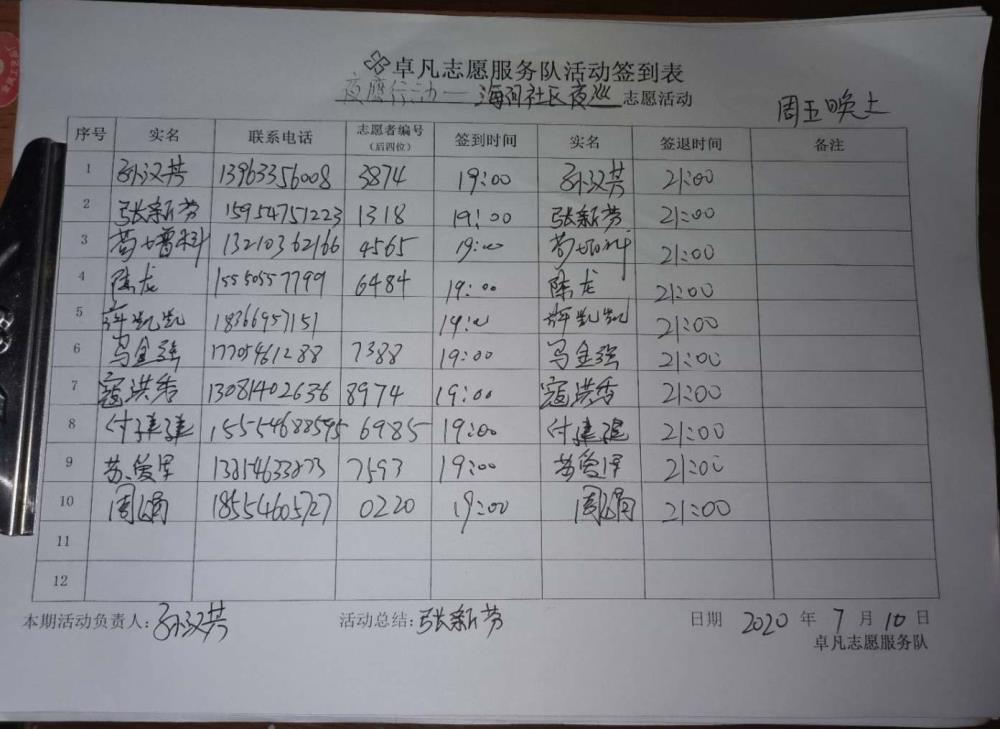 卓凡志愿服务队活动签到表
夜鹰行动—海河社区夜巡 志愿活动
周五晚上
序号 实名 联系电话 志愿者编号(后四位) 签到时间 实名 签退时间 备注
1 孙汉芳 13963356008 3874 19:00 孙汉芳 21:00
2 张新芳 15954751223 1318 19:00 张新芳 21:00
3 增科 13210362166 4565 19:00 21:00
4 陈龙 15550557799 6484 19:00 陈龙 21:00
5 许凯凯 18366957151 19:0 许凯凯 21:00
6 马金强 17705461288 7388 19:00 马金强 21:00
7 寇洪香 13081402636 8974 19:00 寇洪香 21:00
8 付建建 15554688595 6985 19:00 付建 21:00
9 苏爱军 7593 19:00 苏爱军 21:00
10 周娟 18554605727 0220 19:00 周娟 21:00
11
12
本期活动负责人:孙汉芳 活动总结:张新芳 日期 2020 年 7 月 10 日
卓凡志愿服务队